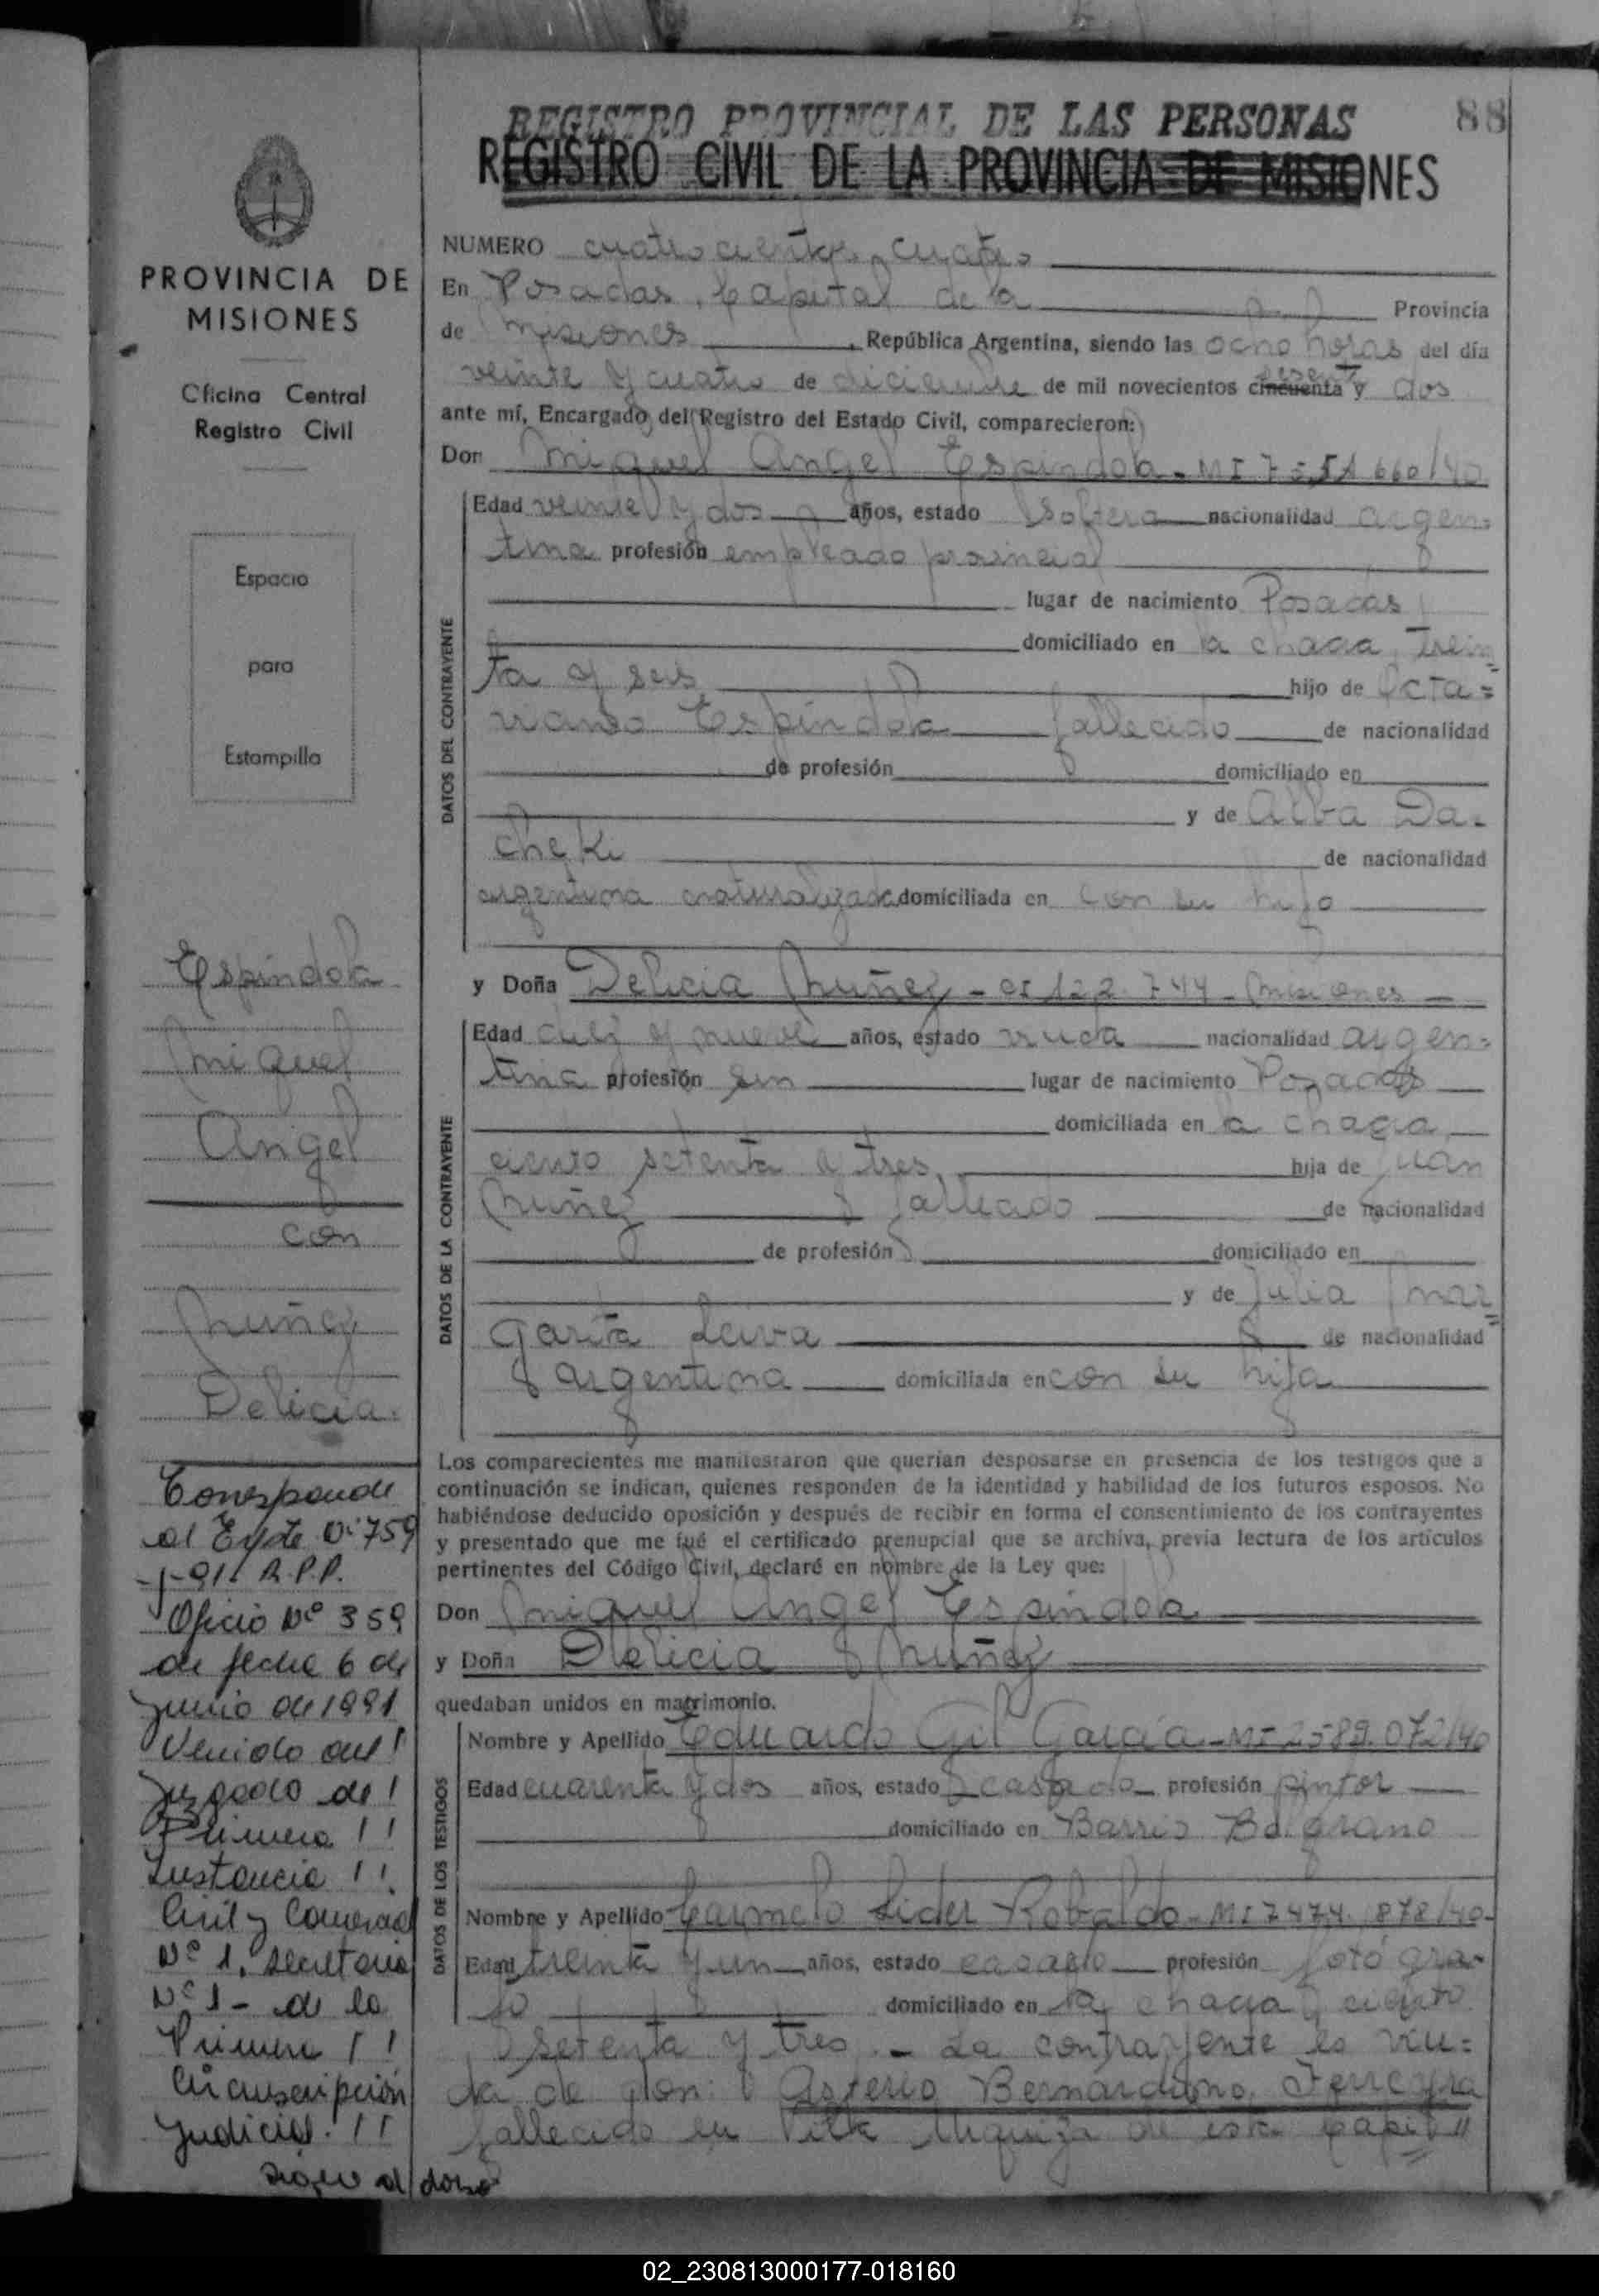 REGISTRO PROVINCIAL DE LAS PERSONAS
88
REGISTRO CIVIL DE LA PROVINCIA DE MISIONES
PROVINCIA DE
MISIONES
Oficina Central
Registro Civil
Espacio
para
Estampilla
Espíndola
Miguel
Angel
con
Nuñez
Delicia.
Corresponde
al Expte Nº 759
-J-91. R.P.P.
Oficio Nº 359
de fecha 6 de
Junio de 1991
Venido del
Juzgado de
Primera
Instancia
Civil y Comercial
Nº 1, Secretaria
Nº 1 - de la
Primera
Circunscripción
Judicial.
Sigue al dorso
NUMERO cuatrocientos cuatro
En Posadas, Capital de la Provincia
de Misiones, República Argentina, siendo las ocho horas del día
veinte y cuatro de diciembre de mil novecientos cincuenta sesenta y dos
ante mí, Encargado del Registro del Estado Civil, comparecieron:
Don Miguel Angel Espíndola - MI 660/40
Edad veinte y dos años, estado soltero nacionalidad argen=
tina profesión empleado provincial
lugar de nacimiento Posadas
domiciliado en la chacra trein=
ta y seis hijo de Octa=
viano Espíndola fallecido de nacionalidad
de profesión domiciliado en
y de Alba Da=
cheki de nacionalidad
argentina naturalizada domiciliada en con su hijo
DATOS DEL CONTRAYENTE
y Doña Delicia Nuñez - CI 122.744 - Misiones -
Edad diez y nueve años, estado viuda nacionalidad argen=
tina profesión sin lugar de nacimiento Posadas
domiciliada en la chacra
ciento setenta y tres, hija de Juan
Nuñez fallecido de nacionalidad
de profesión domiciliado en
y de Julia Mar=
garita Leiva de nacionalidad
argentina domiciliada en con su hija
DATOS DE LA CONTRAYENTE
Los comparecientes me manifestaron que querían desposarse en presencia de los testigos que a
continuación se indican, quienes responden de la identidad y habilidad de los futuros esposos. No
habiéndose deducido oposición y después de recibir en forma el consentimiento de los contrayentes
y presentado que me fué el certificado prenupcial que se archiva, previa lectura de los artículos
pertinentes del Código Civil, declaré en nombre de la Ley que:
Don Miguel Angel Espíndola
y Doña Delicia Nuñez
quedaban unidos en matrimonio.
Nombre y Apellido Eduardo Gil García - MI 2589.072/40
Edad cuarenta y dos años, estado casado profesión pintor
domiciliado en Barrio Belgrano
Nombre y Apellido Carmelo Lider Robaldo - MI 7474.878/40-
Edad treinta y un años, estado casado profesión fotógra=
fo domiciliado en la chacra ciento
DATOS DE LOS TESTIGOS
setenta y tres. - La contrayente es viu=
da de don: Asterio Bernardino Ferreyra
fallecido en Villa Urquiza de esta Capit
02_230813000177-018160